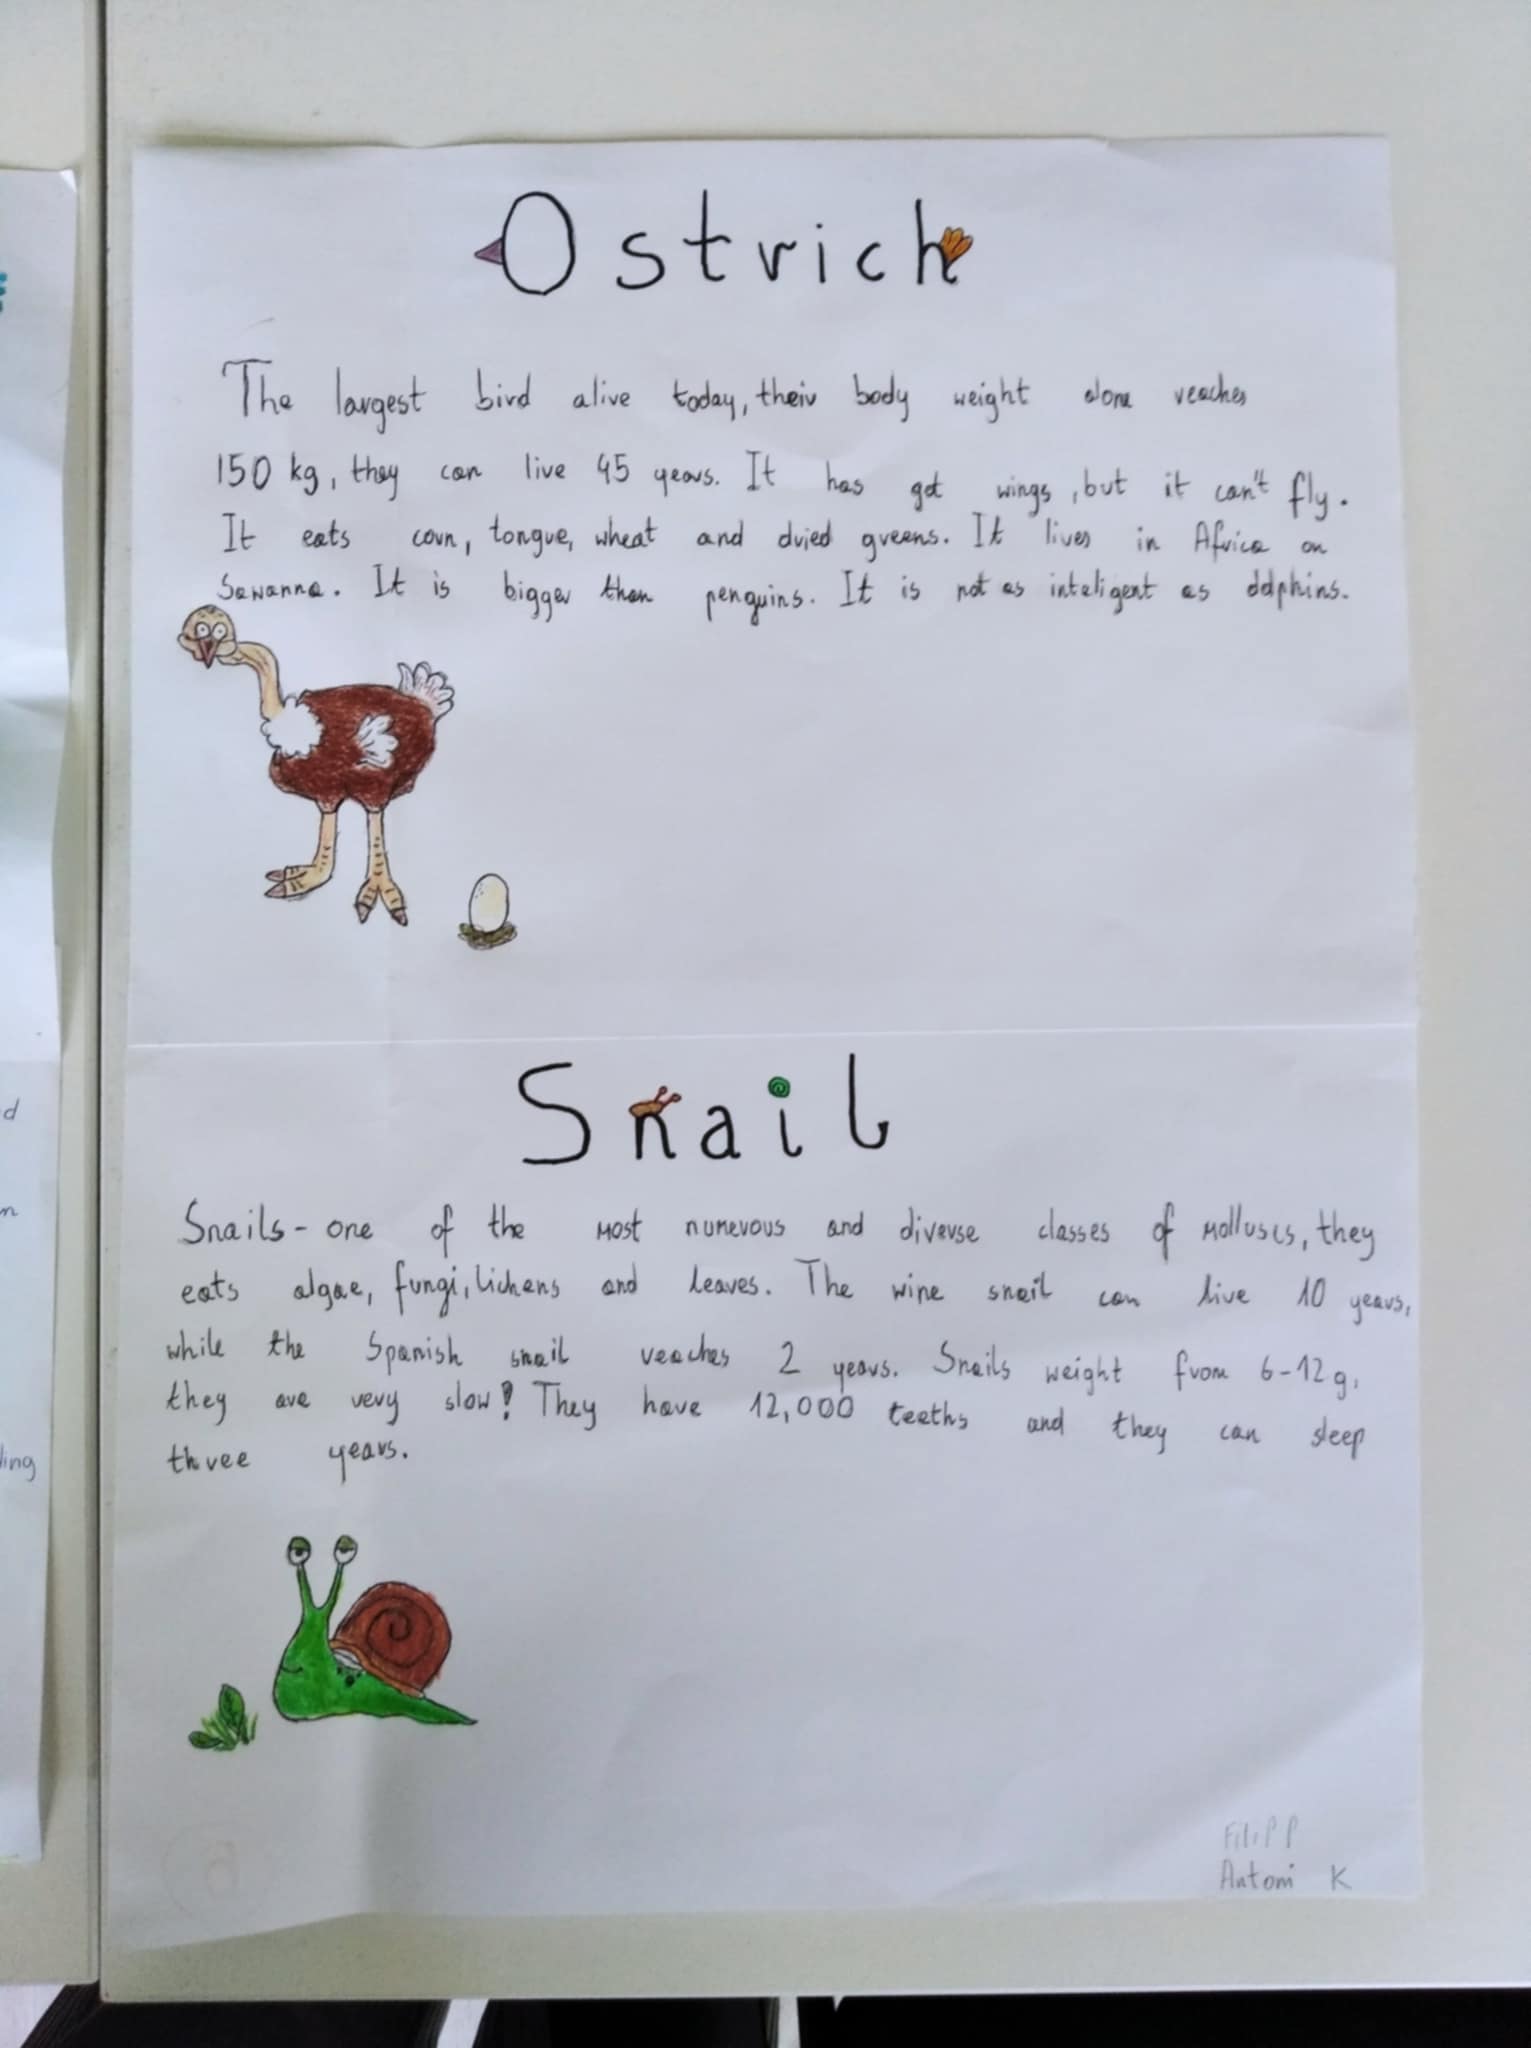 Ostrich
The largest bird alive today, their body weight alone reaches
150 kg, they can live 45 years. It has got wings, but it can't fly.
It eats corn, tongue, wheat and dried greens. It lives in Africa on
Sawanna. It is bigger than penguins. It is not as inteligent as dolphins.
Snail
Snails - one of the most numerous and diverse classes of molluscs, they
eats algae, fungi, lichens and leaves. The wine snail can live 10 years,
while the Spanish snail reaches 2 years. Snails weight from 6-12 g,
they are very slow! They have 12,000 teeths and they can sleep
three years.
Filip P
Antoni K
d
n
ling